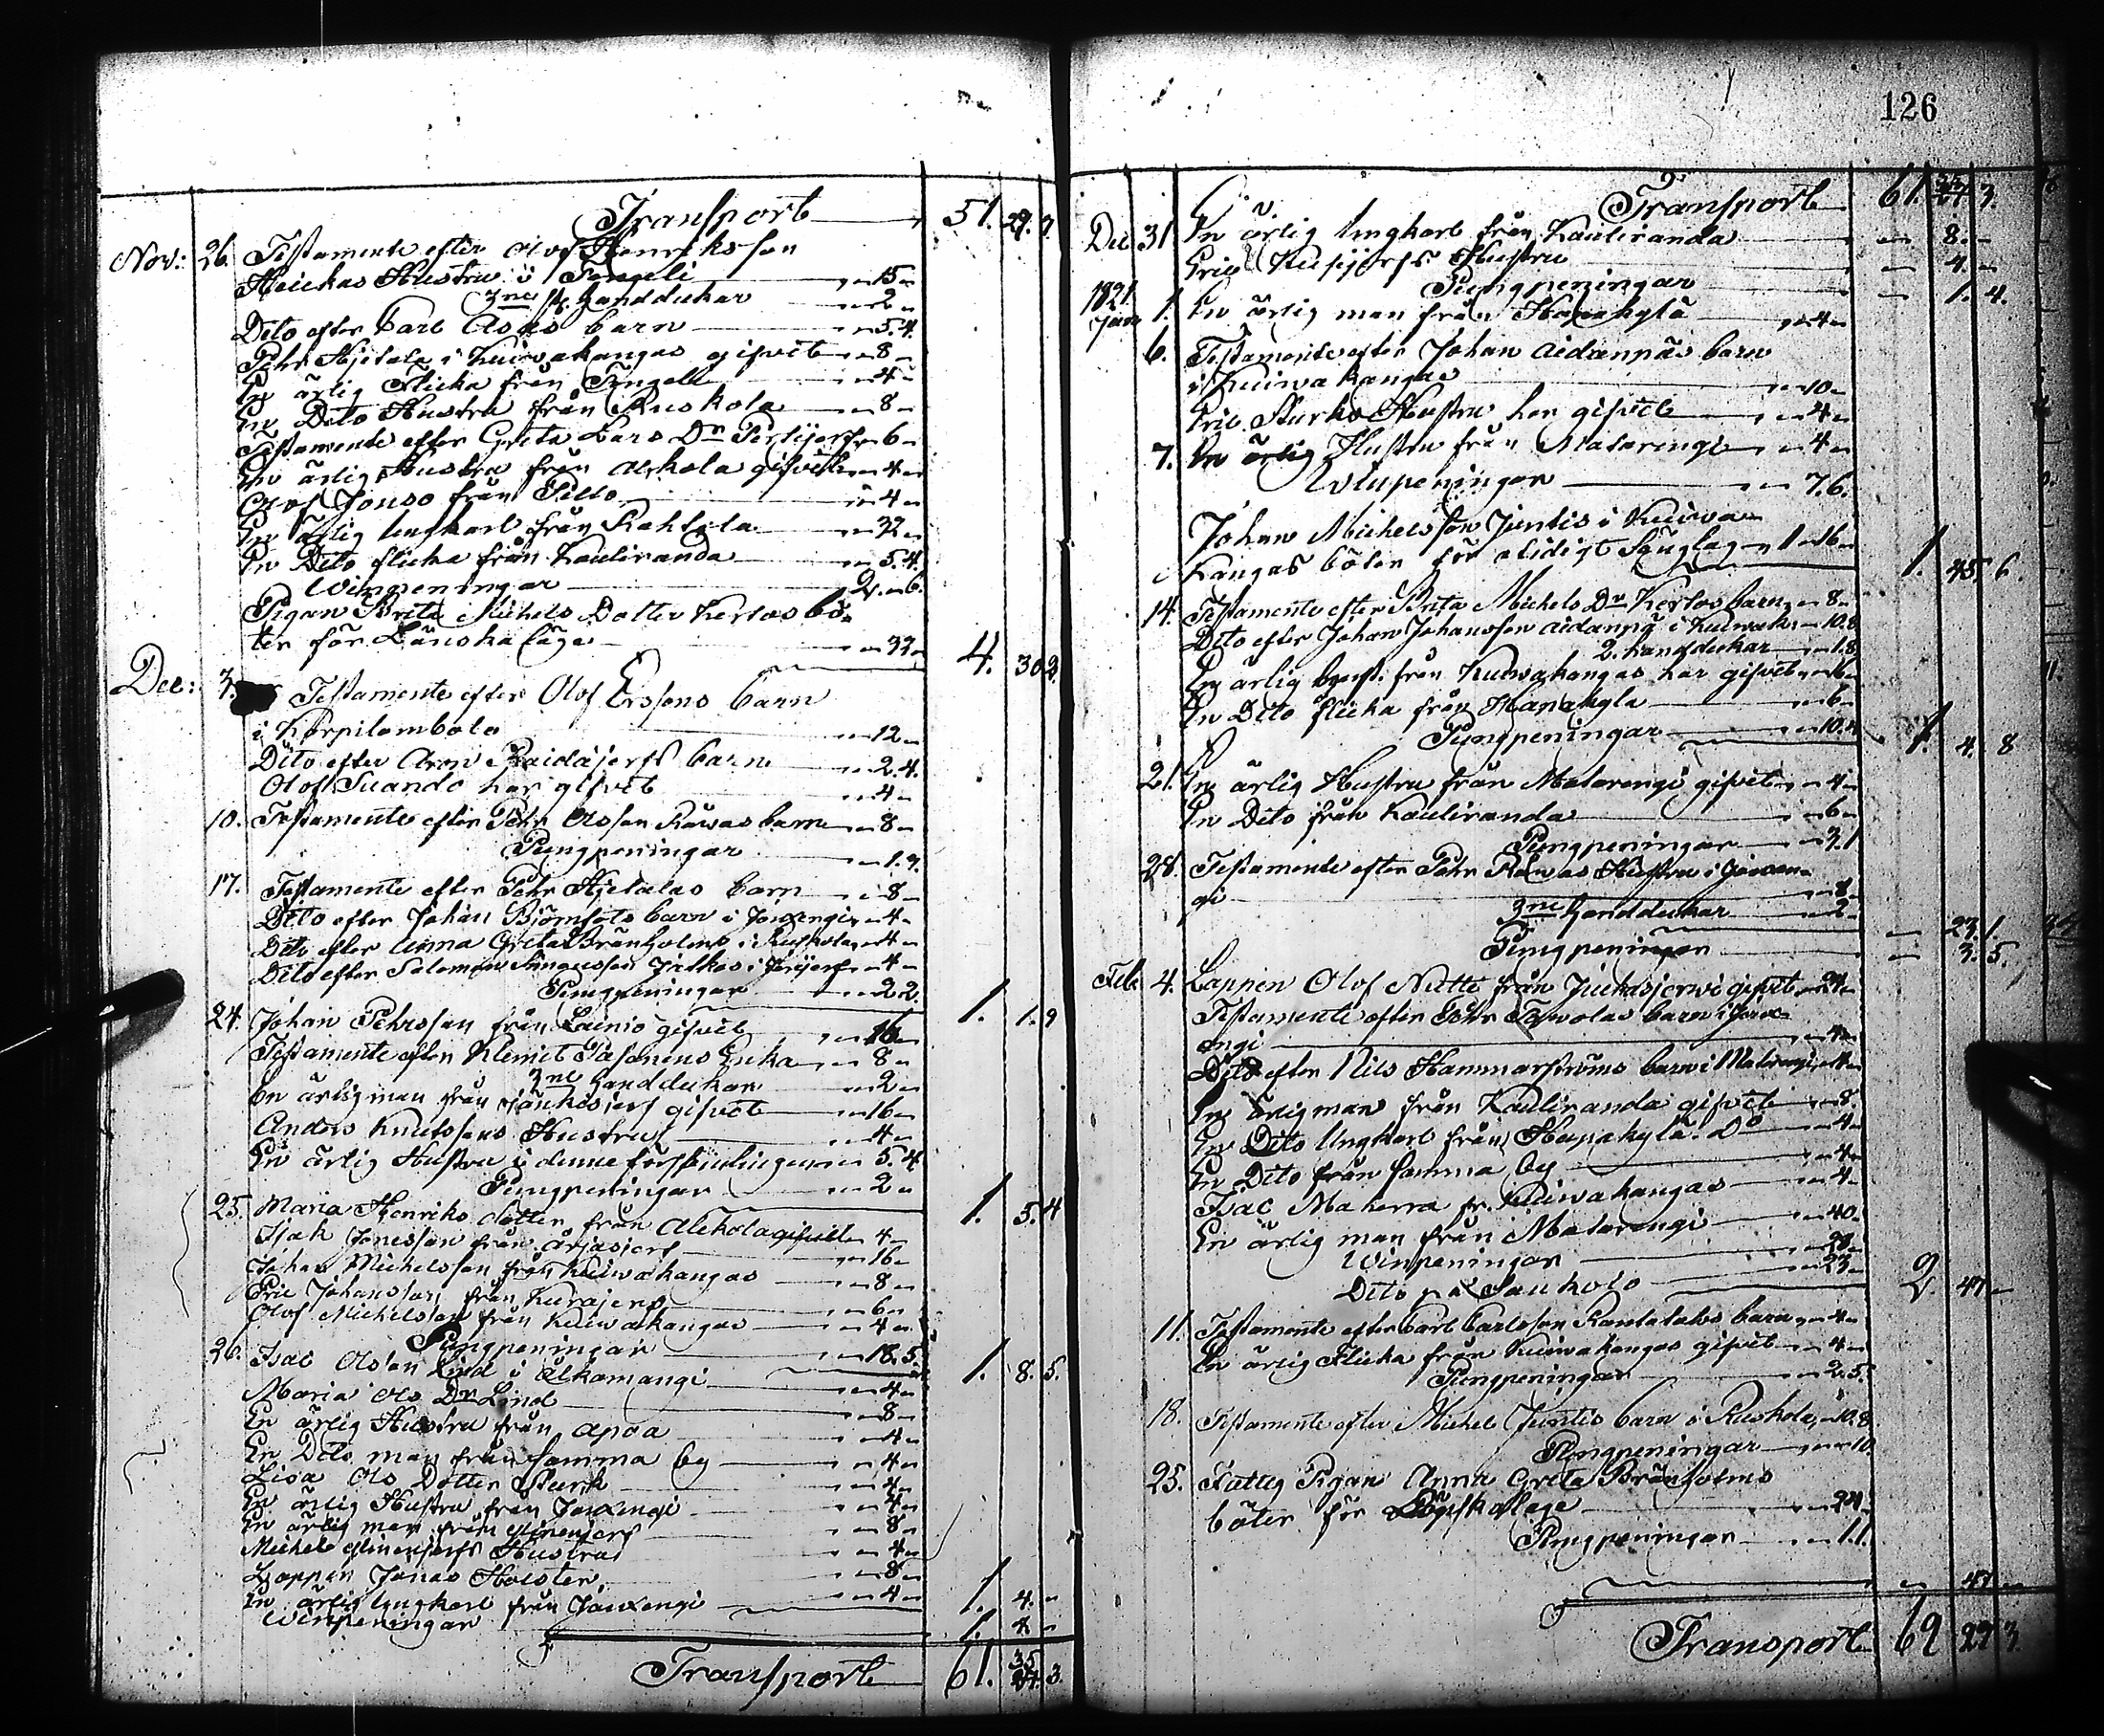 Transport 51. 27. 7.
Nov: 26. Testamente efter Olof Henriksson
Heickas Hustru i Pengeli 15
3ne st. handdukar 2
Dito efter Carl Asas barn 5.4.
Pehr Hjetala i Kuivakangas gifvit 8
En ärlig Flicka från 4
En Dito Hustru från Ruskola 8
Testamente efter Greta Lars Dr 6
En ärlig Hustru från Alkola gifvit 4
Olof Jonso från Pello 4
En ärlig Ungkarl från 32
En Dito flicka från Kauliranda 5.4.
Winpeningar 2. 6.
Pigan Brita Michels Dotter Kertos bö-
ter för Länska läge 32 4. 30 2.
Dec: 3. Testamente efter Olof Erssons barn
i Korpilombolo 12
Dito efter Aron Raidajerfs barn 2.4.
Olof Suando har gifvit 4
10. Testamente efter Pehr Olsson Rawas barn 8
Pungpeningar 1.9.
17. Testamente efter Pehr Hjetalas barn 8
Dito efter Johan barn i Jouxengi 4
Dito efter Anna Greta Bränholms i Ruskola 4
Dito efter Salomon 4
Pungpeningar 2.2. 1. 1. 9
24. Johan Pehrsson från Lainio gifvit 16
Testamente efter Klemet Enka 8
3ne handdukar 2
En ärlig man från gifvit 16
Anders Knutssons Hustru 4
En ärlig Hustru i denne församlingen 5.4
Pungpeningar 2 1. 5. 4
25. Maria Henriks dotter från Alkola gifvit 4
Isak Jonesson från 16
Johan Michelsson från Kuivakangas 8
Eric Johansson från 6
Olof Michelsson från Kuivakangas 4
Pungpeningar 18.5. 1. 8. 5.
26. Isac Olsson Lind i Alkamangi 4
Maria Ols Dr Lind 8
En ärlig Hustru från Apoa 4
En Dito man från samma by 4
Lisa Ols Dotter Sturk 4
En ärlig Hustru från Jouxengi 4
En ärlig man från 8
Michel Hustru 4
Lappen Jonas Holster 8
En ärlig Ungkarl från Jouxengi 4 1. 4.
Winpeningar 1. 4
Transport 61. 35 3.
126
Transport 61. 3.
Dec 31 En ärlig Ungkarl från Kauliranda 8.
Eric Hustru 4.
Pungpeningar 1. 4.
1821. Jan 1. En ärlig man från Hapakylä 4
6. Testamente efter Johan Aidanpäs barn
i Kuiwakangas 10
Eric Sturks Hustru har gifvit 4
7. En ärlig Hustru från Matarengi 4
Winpeningar 7.6.
Johan Michelsson Juntis i Kuiwa-
kangas böter för olidigt Sänglag 1 16 1. 45. 6.
14. Testamente efter Brita Michels Dr Kertos barn 8
Dito efter Johan Johansson Aidanpä i Kuiwak: 10.8
2. handdukar 1.8
En ärlig från Kuiwakangas har gifvit 16
En Dito flicka från Hapakylä 6
Pungpeningar 10.4 1. 4. 8
21. En ärlig Hustru från Matarengi gifvit 4
En Dito från Kauliranda 6
Pungpeningar 3.1
28. Testamente efter Pehr Rawas Hustru i Jouxen-
gi 8
3ne handdukar 2 23.1.
Pungpeningar 3. 5.
Feb. 4. Lappen Olof Nutti från Juckasjerwi gifvit 24
Testamente efter Pehr barn i Joux-
engi 4
Dito efter Nils Hammarströms barn i Matarengi 4
En ärlig man från Kauliranda gifvit 8.
En Dito Ungkarl från Hapakylä. Do 4
En Dito från samma by 4
Isac Maherra fr. Kuiwakangas 4
En ärlig man från Matarengi 40.
Winpeningar 28
Dito på Saukolo 23 2. 47
11. Testamente efter Carl Carlsson barn 4
En ärlig Flicka från Kuiwakangas gifvit 4
Pungpeningar 2.5.
18. Testamente efter Michel Juntis barn i Ruskola 10.8
Pungpeningar 10.
25. Fattig Pigan Anna Greta Bränholms
böter för läge 24
Pungpeningar 1.1.
47
Transport 62 27 3.